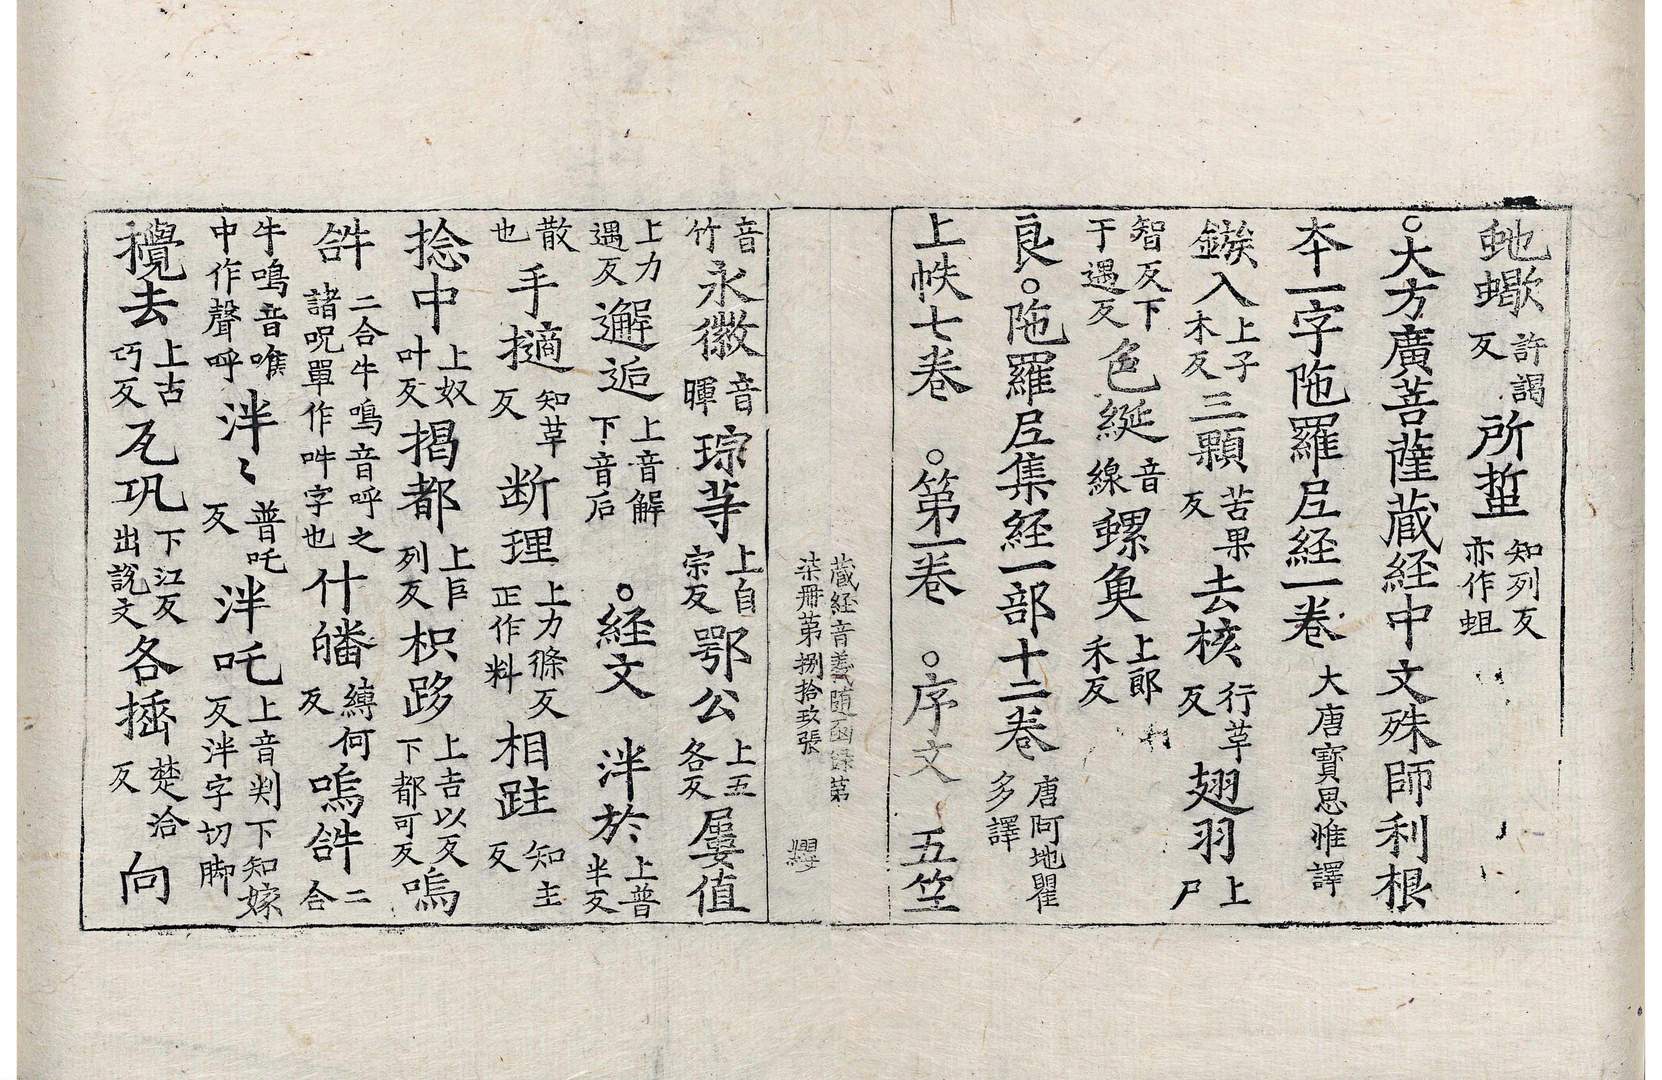 虵蠍許謁反所蜇知列反亦作蛆
○大方廣菩薩蔵経中文殊師利根
夲一字陁羅尼経一卷大唐寶思惟譯
鏃入上子木反三顆苦果反去核行草反翅羽上尸
智反下于遇反色綖音線螺𩵋上郎禾反
良○陁羅尼集経一部十二卷唐阿地瞿多譯
上帙七卷○第一卷○序文五竺
藏経音義随函録第
柒冊第捌拾玖張
纓
音竹永徽音暉琮䓁上自宗反鄂公上五各反屢值
上力遇反邂逅上音解下音后○経文泮於上普半反
散也手擿知草反断理上力條反正作料相跓知主反
捻中上奴叶反揭都上巨列反枳跢上吉以反下都可反嗚
𤙖二合牛鳴音呼之諸呪單作吽字也什皤縛何反嗚𤙖二合
牛鳴音嚾中作聲呼泮〻普吒反泮吒上音判下知嫁反泮字切脚
攪去上古巧反瓦巩下江反出說文各插楚洽反向